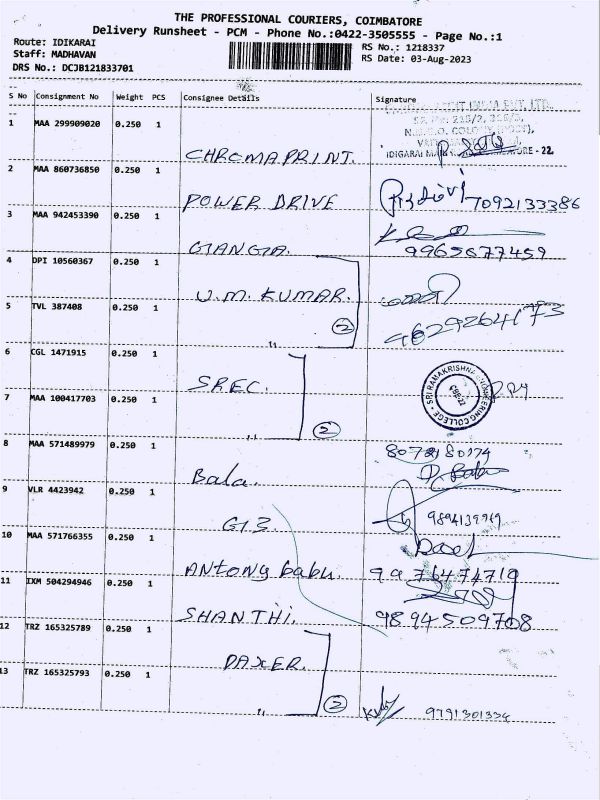 THE PROFESSIONAL COURIERS, COIMBATORE
Delivery Runsheet - PCM - Phone No.:0422-3505555 - Page No.:1
Route: IDIKARAI
RS No.: 1218337
Staff: MADHAVAN
RS Date: 03-Aug-2023
DRS No.: DCJB121833701
S No Consignment No Weight PCS Consignee Details Signature
1 MAA 299909020 0.250 1 CHROMAPRINT.
2 MAA 860736850 0.250 1 POWER DRIVE 7092133386
3 MAA 942453390 0.250 1 GIANGIA. 9965677459
4 DPI 10560367 0.250 1 U.M. KUMAR.
5 TVL 387408 0.250 1 ,, 2 9629264173
6 CGL 1471915 0.250 1 SREC. SRI RAMAKRISHNA ENGINEERING COLLEGE CBE-22
7 MAA 100417703 0.250 1 ,, 2
8 MAA 571489979 0.250 1 Bala.
9 VLR 4423942 0.250 1 G13.
10 MAA 571766355 0.250 1 ANtony babu.
11 IXM 504294946 0.250 1 SHANTHI. 9894509708
12 TRZ 165325789 0.250 1 DAXER.
13 TRZ 165325793 0.250 1 ,, 2 9791301334